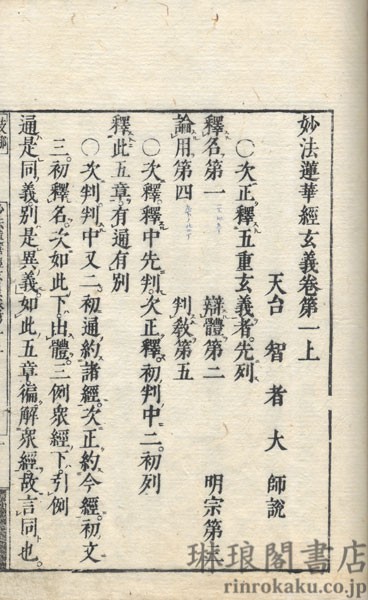 妙法蓮華經玄義卷第一上
天台智者大師說
〇次正釋五重玄義者先列
釋名第一 辯體第二 明宗第
論用第四 判教第五
〇次釋中先判次正釋初判中二初列
釋此五章有通有別
〇次判判中又二初通約諸經次正約今經初文
三初釋名次如此下出體三例衆經下引例
通是同義別是異義如此五章徧解衆經故言同也
琳琅閣書店
rinrokaku.co.jp